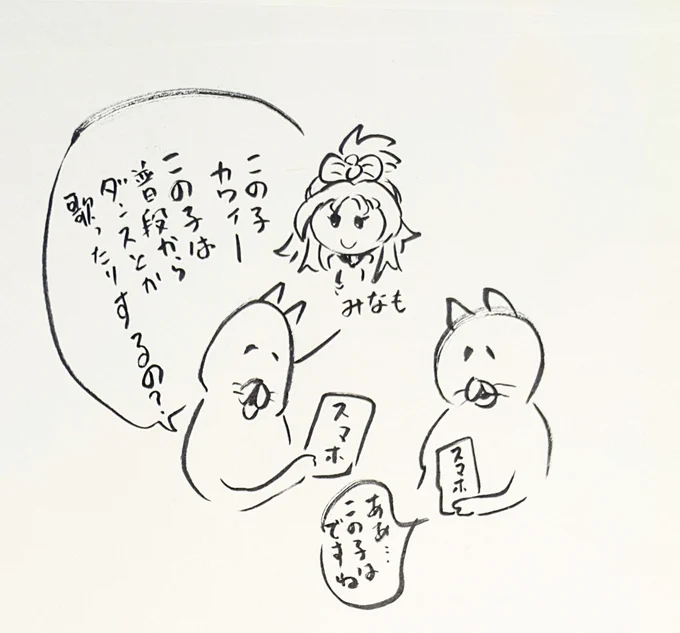 この子
カワイー
この子は
普段から
ダンスとか
歌ったりするの?
みなも
スマホ
スマホ
ああ…
この子は
ですね